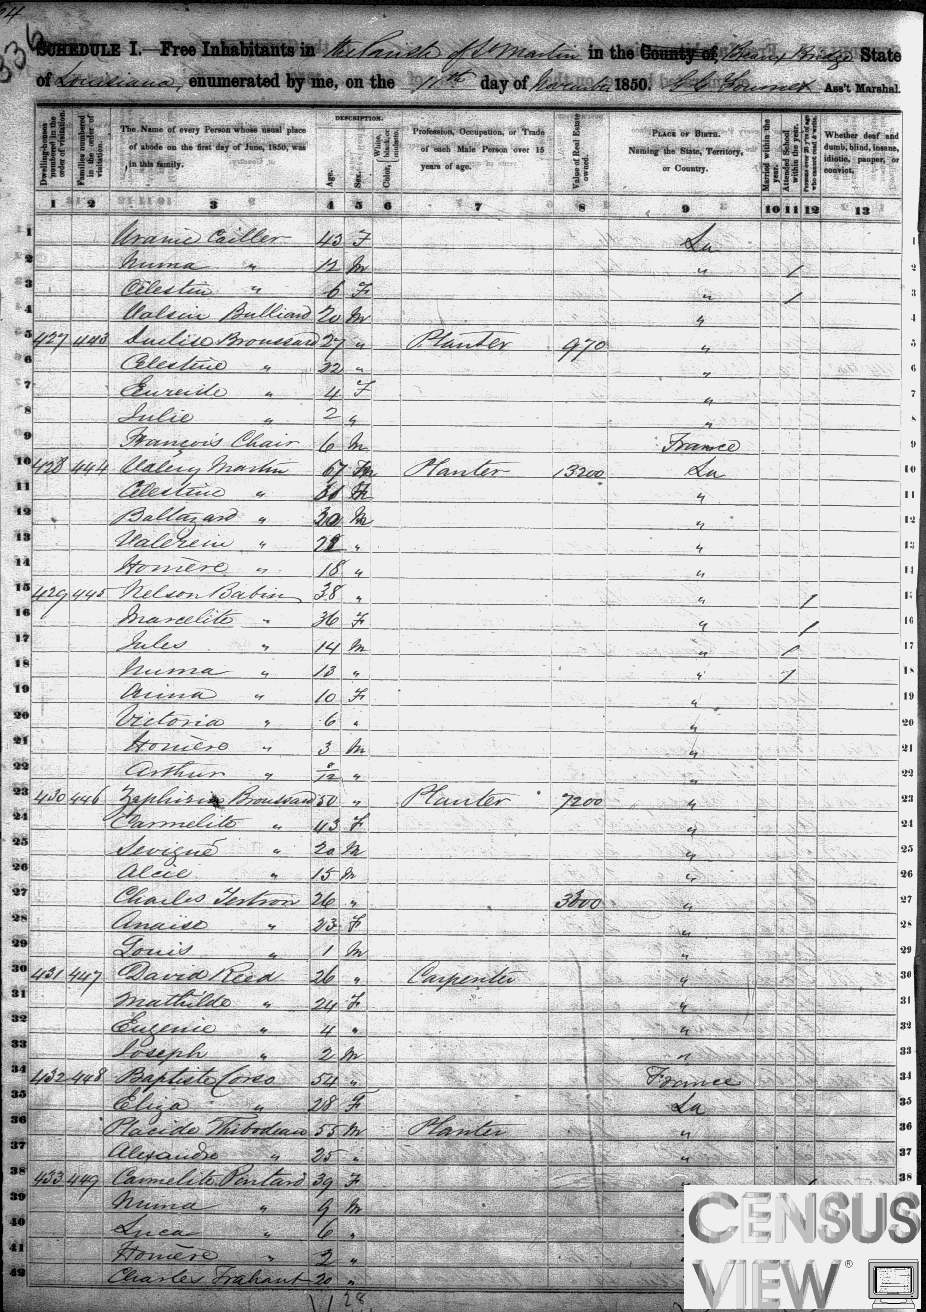 336
SCHEDULE I.—Free Inhabitants in the Parish of St Martin in the County of Breaux Bridge State
of Louisiana, enumerated by me, on the 11th day of November 1850. Ass't Marshal.
Dwelling-houses numbered in the order of visitation.
Families numbered in the order of visitation.
The Name of every Person whose usual place of abode on the first day of June, 1850, was in this family.
DESCRIPTION.
Age.
Sex.
Color, White, black, or mulatto.
Profession, Occupation, or Trade of each Male Person over 15 years of age.
Value of Real Estate owned.
PLACE OF BIRTH. Naming the State, Territory, or Country.
Married within the year.
Attended School within the year.
Persons over 20 y'rs of age who cannot read & write.
Whether deaf and dumb, blind, insane, idiotic, pauper, or convict.
1 2 3 4 5 6 7 8 9 10 11 12 13
1 Uranie Cailler 43 F La 1
2 Numa " 12 M " / 2
3 Célestin " 6 F " / 3
4 Valsin Bulliard 20 M " 4
5 427 443 Broussard 27 " Planter 970 " 5
6 Celestine " 22 " " 6
7 " 4 F " 7
8 Julie " 2 " " 8
9 François Chair 6 M France 9
10 428 444 Valery Martin 67 M Planter 13200 La 10
11 Celestine " " 11
12 Baltazard " 30 M " 12
13 " " " 13
14 Homère " 18 " " 14
15 429 445 Nelson Babin 38 " " / 15
16 Marcelite " 36 F " / 16
17 Jules " 14 M " / 17
18 Numa " 13 " " / 18
19 " 10 F " 19
20 Victoria " 6 " " 20
21 Homère " 3 M " 21
22 Arthur " 8/12 " " 22
23 430 446 Broussard 50 " Planter 7200 " 23
24 Carmelite " 43 F " 24
25 Sevigné " 20 M " 25
26 Alcée " 15 M " 26
27 Charles 26 " 3000 " 27
28 Anaïse " 23 F " 28
29 Louis " 1 M " 29
30 431 447 David Reed 26 " Carpenter " 30
31 Mathilde " 24 F " 31
32 Eugenie " 4 " " 32
33 Joseph " 2 M " 33
34 432 448 Baptiste Corso 54 " France 34
35 Eliza " 28 F La 35
36 Placide Thibodeau 55 M Planter " 36
37 Alexandre " 25 " " 37
38 433 449 Carmelite 39 F 38
39 Numa " 9 M
40 Luca " 6 "
41 Homère " 2 "
42 Charles Frahant 20 "
CENSUS
VIEW®